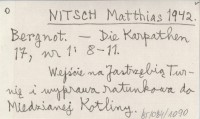 O
NITSCH Matthias 1942.
Bergnot. — Die Karpathen
17, nr 1: 8-11.
Wejście na Jastrzębią Tur-
nię i wyprawa ratunkowa do
Miedzianej Kotliny.